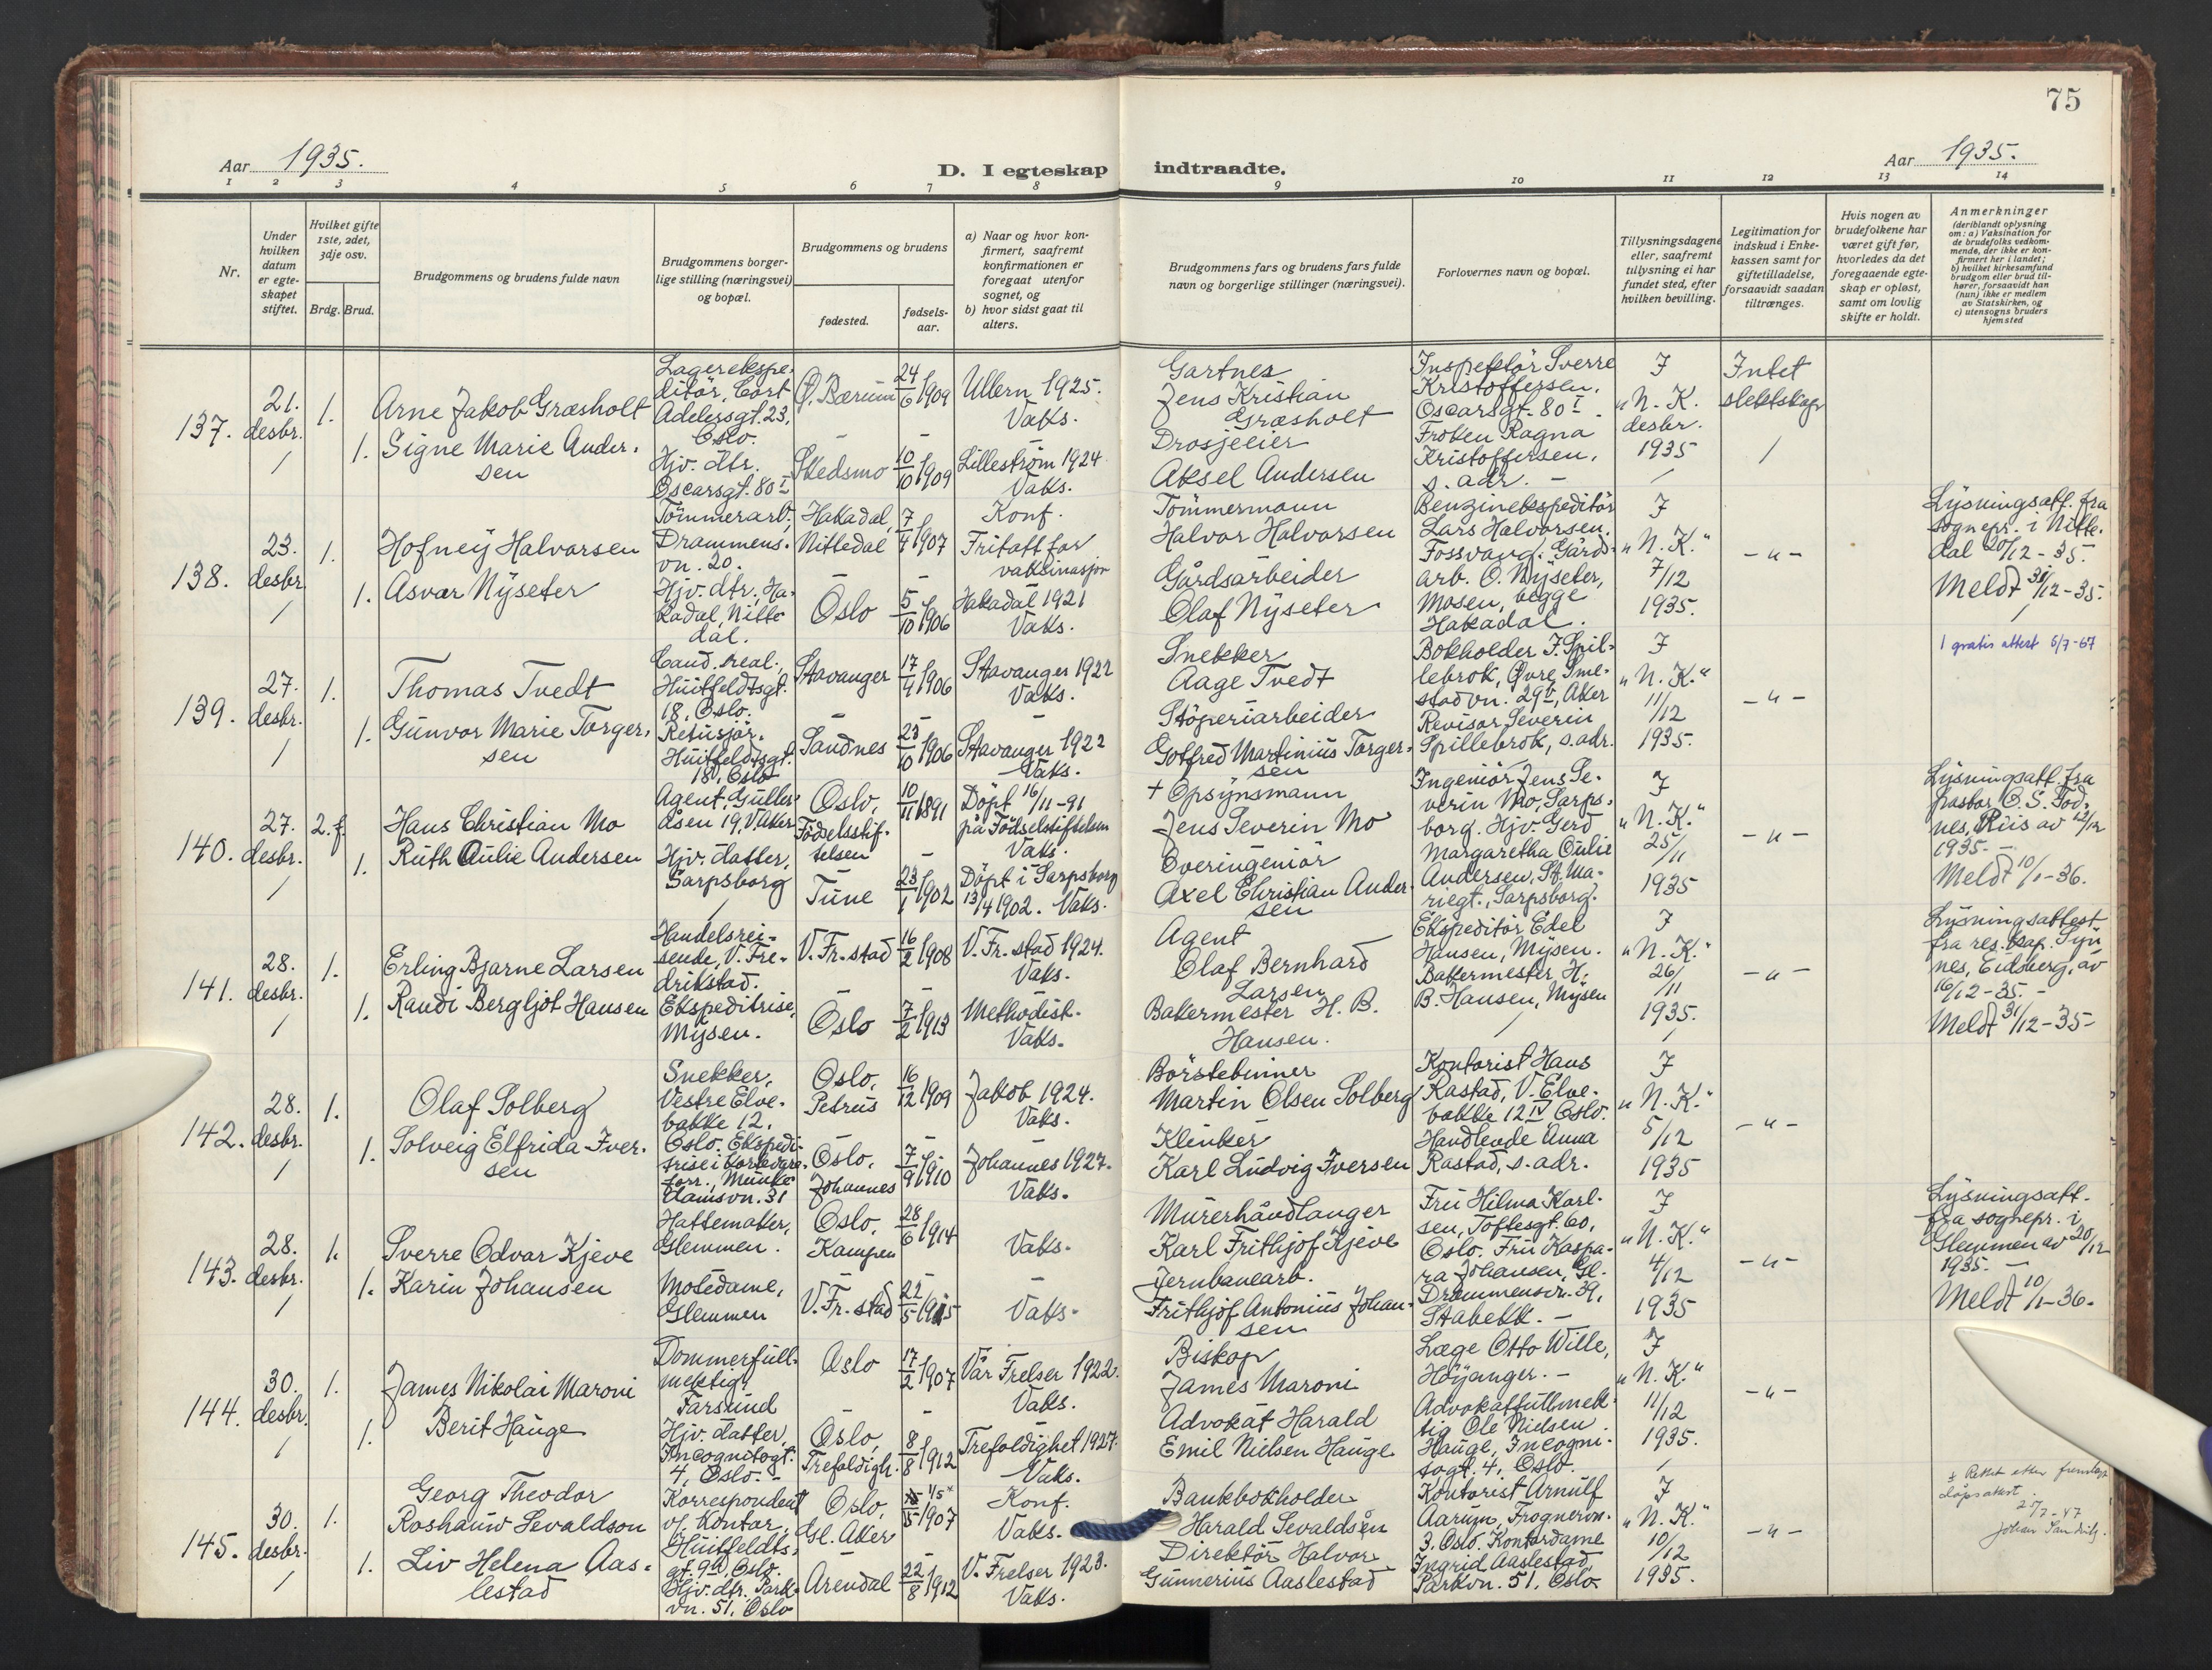 75
Aar 1935.
D. I egteskap indtraadte.
Aar 1935.
1 2 3 4 5 6 7 8 9 10 11 12 13 14
Nr.
Under hvilken datum er egteskapet stiftet.
Hvilket gifte 1ste, 2det, 3dje osv.
Brdg. Brud.
Brudgommens og brudens fulde navn
Brudgommens borgerlige stilling (næringsvei) og bopæl.
Brudgommens og brudens
fødested.
fødselsaar.
a) Naar og hvor konfirmert, saafremt konfirmationen er foregaat utenfor sognet, og
b) hvor sidst gaat til alters.
Brudgommens fars og brudens fars fulde navn og borgerlige stillinger (næringsvei).
Forlovernes navn og bopæl.
Tillysningsdagene eller, saafremt tillysning ei har fundet sted, efter hvilken bevilling.
Legitimation for indskud i Enkekassen samt for giftetilladelse, forsaavidt saadan tiltrænges.
Hvis nogen av brudefolkene har været gift før, hvorledes da det foregaaende egteskap er opløst, samt om lovlig skifte er holdt.
Anmerkninger (deriblandt oplysning om: a) Vaksination for de brudefolks vedkommende, der ikke er konfirmert her i landet; b) hvilket kirkesamfund brudgom eller brud tilhører, forsaavidt han (hun) ikke er medlem av Statskirken, og c) utensogns bruders hjemsted
137. 21. desbr. 1.
Arne Jakob Græsholt
Lagerekspeditör, Cort Adelersgt. 23, Oslo.
Ö. Bærum 24/6 1909
Ullern 1925. Vaks.
Gartner Jens Kristian Græsholt
Inspektör Sverre Kristoffersen, Oscarsgt. 80 I. Fröken Ragna Kristoffersen, s. adr. –
I „N. K. desbr. 1935
Intet slektskap
1. Signe Marie Andersen
Hjv. dtr. Oscarsgt. 80 I
Skedsmo 10/10 1909
Lilleström 1924 Vaks.
Drosjeeier Aksel Andersen
138. 23. desbr. 1.
Hofney Halvorsen
Tömmerarb., Drammensvn. 20.
Hakadal, Nittedal 7/4 1907
Konf. Fritatt for vaksinasjon
Tömmermann Halvor Halvorsen
Benzinekspeditör Lars Halvorsen, Fossvang. Gårdsarb. O. Nyseter, Mosen, begge Hakadal.
I „N. K.“ 7/12 1935.
– „ –
Lysningsatt. fra sognepr. i Nittedal 20/12 – 35. Meldt 31/12 – 35.
1. Asvar Nyseter
Hjv. dtr., Hakadal, Nittedal.
Oslo 5/10 1906
Hakadal 1921 Vaks.
Gårdsarbeider Olaf Nyseter
139. 27. desbr. 1.
Thomas Tvedt
Cand. real., Huitfeldtsgt. 18, Oslo.
Stavanger 17/4 1906
Stavanger 1922 Vaks.
Snekker Aage Tvedt
Bokholder J. Spillebrok, Övre Smestadvn. 29b, Aker Revisor Severin Spillebrok, s. adr.
I „N. K.“ 11/12 1935.
– „ –
1 gratis attest 6/7-67
1. Gunvor Marie Torgersen
Retusjör. Huitfeldtsgt. 18, Oslo
Sandnes 23/10 1906
Stavanger 1922 Vaks.
Stöperiarbeider Gotfred Martinius Torgersen
140. 27. desbr. 2. f.
Hans Christian Mo
Agent, Gulleråsen 19, V. Aker
Oslo, Födselsstiftelsen 10/11 1891
Döpt 16/11 – 91 på Födselsstiftelsen Vaks.
+ Opsynsmann Jens Severin Mo
Ingeniör Jens Severin Mo, Sarpsborg. Hjv. Gerd Margaretha Oulie Andersen, St. Mariegt., Sarpsborg.
I „N. K.“ 25/11 1935
– „ –
Lysningsatt. fra pastor O. S. Fodnes, Riis av 12/12 1935. – Meldt 10/1 – 36.
1. Ruth Oulie Andersen
Hjv. datter, Sarpsborg
Tune 23/1 1902
Döpt i Sarpsborg 13/4 1902. Vaks.
Overingeniör Axel Christian Andersen
141. 28. desbr. 1.
Erling Bjarne Larsen
Handelsreisende, V. Fredrikstad.
V. Fr. stad 16/2 1908
V. Fr. stad 1924. Vaks.
Agent Olaf Bernhard Larsen
Ekspeditör Edel Hansen, Mysen. Bakermester H. B. Hansen, Mysen
I „N. K.“ 26/11 1935.
– „ –
Lysningsattest fra res. kap. Synnes, Eidsberg, av 16/12 – 35. – Meldt 31/12 – 35 –
1. Randi Bergljot Hansen
Ekspeditrise, Mysen.
Oslo 7/2 1913
Methodist. Vaks.
Bakermester H. B. Hansen.
142. 28. desbr. 1.
Olaf Solberg
Snekker, Vestre Elvebakke 12, Oslo.
Oslo, Petrus 16/12 1909
Jakob 1924. Vaks.
Börstebinner Martin Olsen Solberg
Kontorist Hans Rastad, V. Elvebakke 12 IV, Oslo. Handlende Anna Rastad, s. adr.
I „N. K.“ 5/12 1935
– „ –
1. Solveig Elfrida Iversen
Ekspeditrise i kortevareforr., Munkedamsvn. 31
Oslo, Johannes 7/9 1910
Johannes 1927. Vaks.
Klinker Karl Ludvig Iversen
143. 28. desbr. 1.
Sverre Odvar Kjeve
Hattemaker, Glemmen.
Oslo, Kampen 28/6 1914
Vaks.
Murerhåndlanger Karl Frithjof Kjeve
Fru Hilma Karlsen, Toftesgt. 60, Oslo. Fru Kaspara Johansen, Gl. Drammensvn. 39, Stabekk. –
I „N. K.“ 4/12 1935
– „ –
Lysningsatt. fra sognepr. i Glemmen av 20/12 1935. – Meldt 10/1 – 36.
1. Karin Johansen
Motedame, Glemmen
V. Fr. stad 22/5 1915
Vaks.
Jernbanearb. Frithjof Antonius Johansen
144. 30. desbr. 1.
James Nikolai Maroni
Dommerfullmektig, Farsund
Oslo 17/2 1907
Vår Frelser 1922. Vaks.
Biskop James Maroni
Læge Otto Wille, Höyanger. – Advokatfullmektig Ole Nielsen Hauge, Incognitogt. 4, Oslo.
I „N. K.“ 11/12 1935.
– „ –
1. Berit Hauge
Hjv. datter, Incognitogt. 4, Oslo. –
Oslo, Trefoldigh. 8/8 1912
Trefoldighet 1927. Vaks.
Advokat Harald Emil Nielsen Hauge
145. 30. desbr. 1.
Georg Theodor Roshauw Sevaldson
Korrespondent v/ kontor, Huitfeldtsgt. 9, Oslo.
Oslo, Gl. Aker 1/5 x 1907
Konf. Vaks.
Bankbokholder Harald Sevaldsen
Kontorist Arnulf Aarum, Frognervn. 3. Oslo. Kontordame Ingrid Aaslestad, Parkvn. 51, Oslo.
I „N. K.“ 10/12 1935.
– „ –
x Rettet etter fremlagt dåpsattest. 25/7-47 Johan
1. Liv Helena Aaslestad
Hjv. dtr. Parkvn. 51, Oslo
Arendal 22/8 1912
V. Frelser 1923. Vaks.
Direktör Halvor Gunnerius Aaslestad